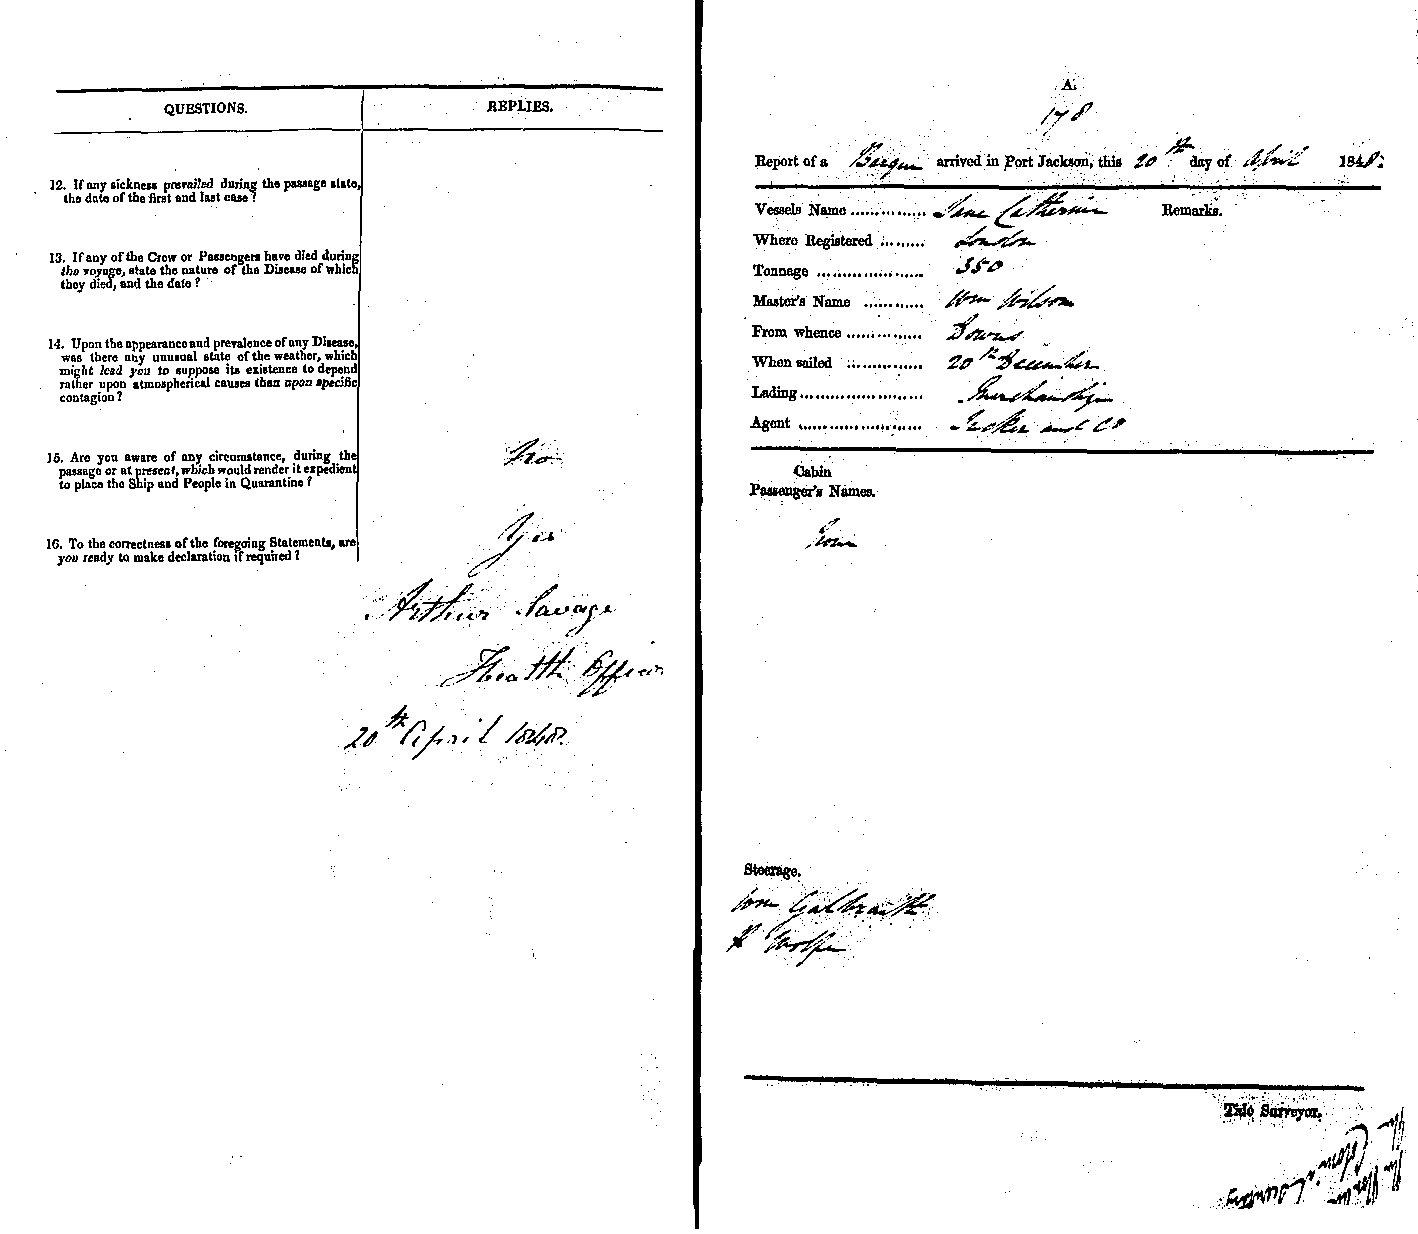 QUESTIONS. REPLIES.
12. If any sickness prevailed during the passage state,
the date of the first and last case?
13. If any of the Crew or Passengers have died during
the voyage, state the nature of the Disease of which
they died, and the date?
14. Upon the appearance and prevalence of any Disease,
was there any unusual state of the weather, which
might lead you to suppose its existence to depend
rather upon atmospherical causes than upon specific
contagion?
15. Are you aware of any circumstance, during the
passage or at present, which would render it expedient
to place the Ship and People in Quarantine?
No
16. To the correctness of the foregoing Statements, are
you ready to make declaration if required?
Yes
Arthur Savage
Health Officer
20th April 1848.
A.
178
Report of a Barque arrived in Port Jackson, this 20th day of April 1848.
Vessels Name .............. Jane Catherine Remarks.
Where Registered ......... London
Tonnage ...................... 350
Master's Name ............ Wm Wilson
From whence .............. Downs
When sailed .............. 20th December
Lading....................... Merchandize
Agent ....................... and Co
Cabin
Passenger's Names.
None
Steerage.
Wm Galbraith
Wolfe
Tide Surveyor.
The
Colonial